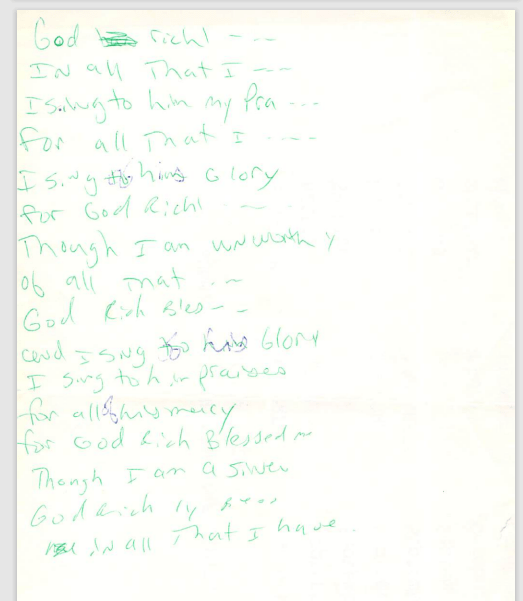 God richl ---
IN all That I ---
I sing to him my Pra ---
for all That I ----
I sing his Glory
for God Richl --
Though I am unworthy
of all That --
God Rich Bles--
and I sing his Glory
I sing to him praises
for all of his mercy
for God Rich Blessed m
Though I am a
God Rich ly
in all That I have